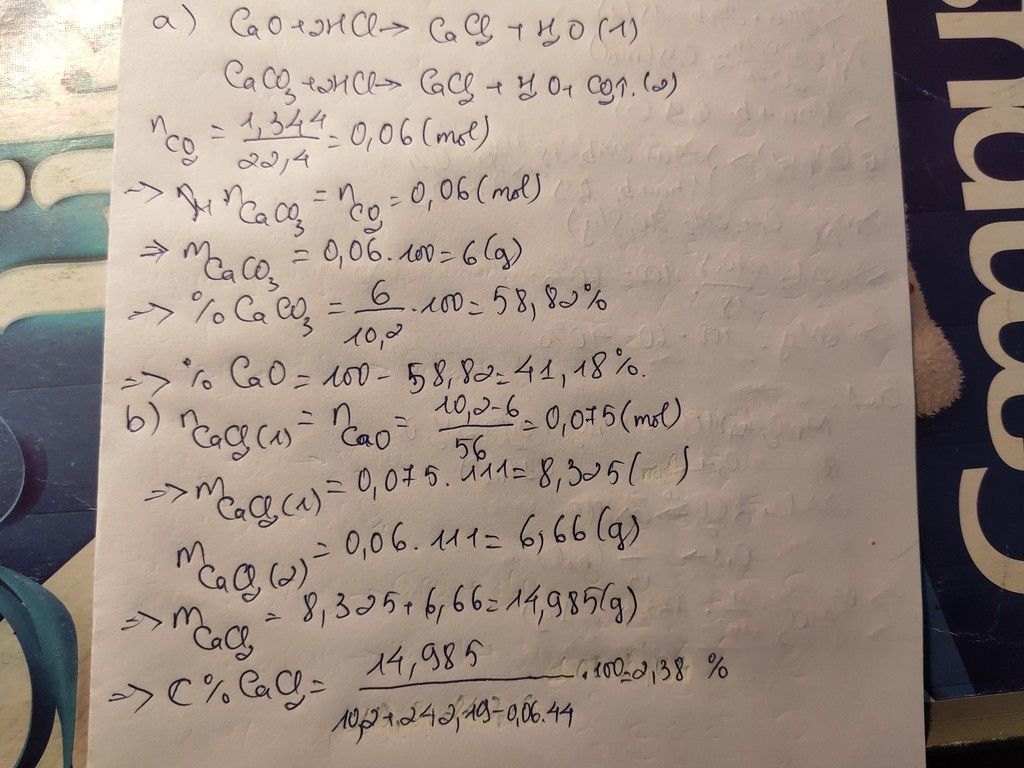 a) CaO + 2HCl → CaCl2 + H2O (1)
CaCO3 + 2HCl → CaCl2 + H2O + CO2↑. (2)
nCO2 = 1,344/22,4 = 0,06 (mol)
=> nCaCO3 = nCO2 = 0,06 (mol)
=> mCaCO3 = 0,06 . 100 = 6 (g)
=> %CaCO3 = 6/10,2 . 100 = 58,82%
=> % CaO = 100 - 58,82 = 41,18%.
b) nCaCl2(1) = nCaO = 10,2-6/56 = 0,075 (mol)
=> mCaCl2(1) = 0,075 . 111 = 8,325 (mol)
mCaCl2(2) = 0,06 . 111 = 6,66 (g)
=> mCaCl2 = 8,325 + 6,66 = 14,985 (g)
=> C% CaCl2 = 14,985/10,2 + 242,19 - 0,06.44 .100 = 2,38 %
Cambri